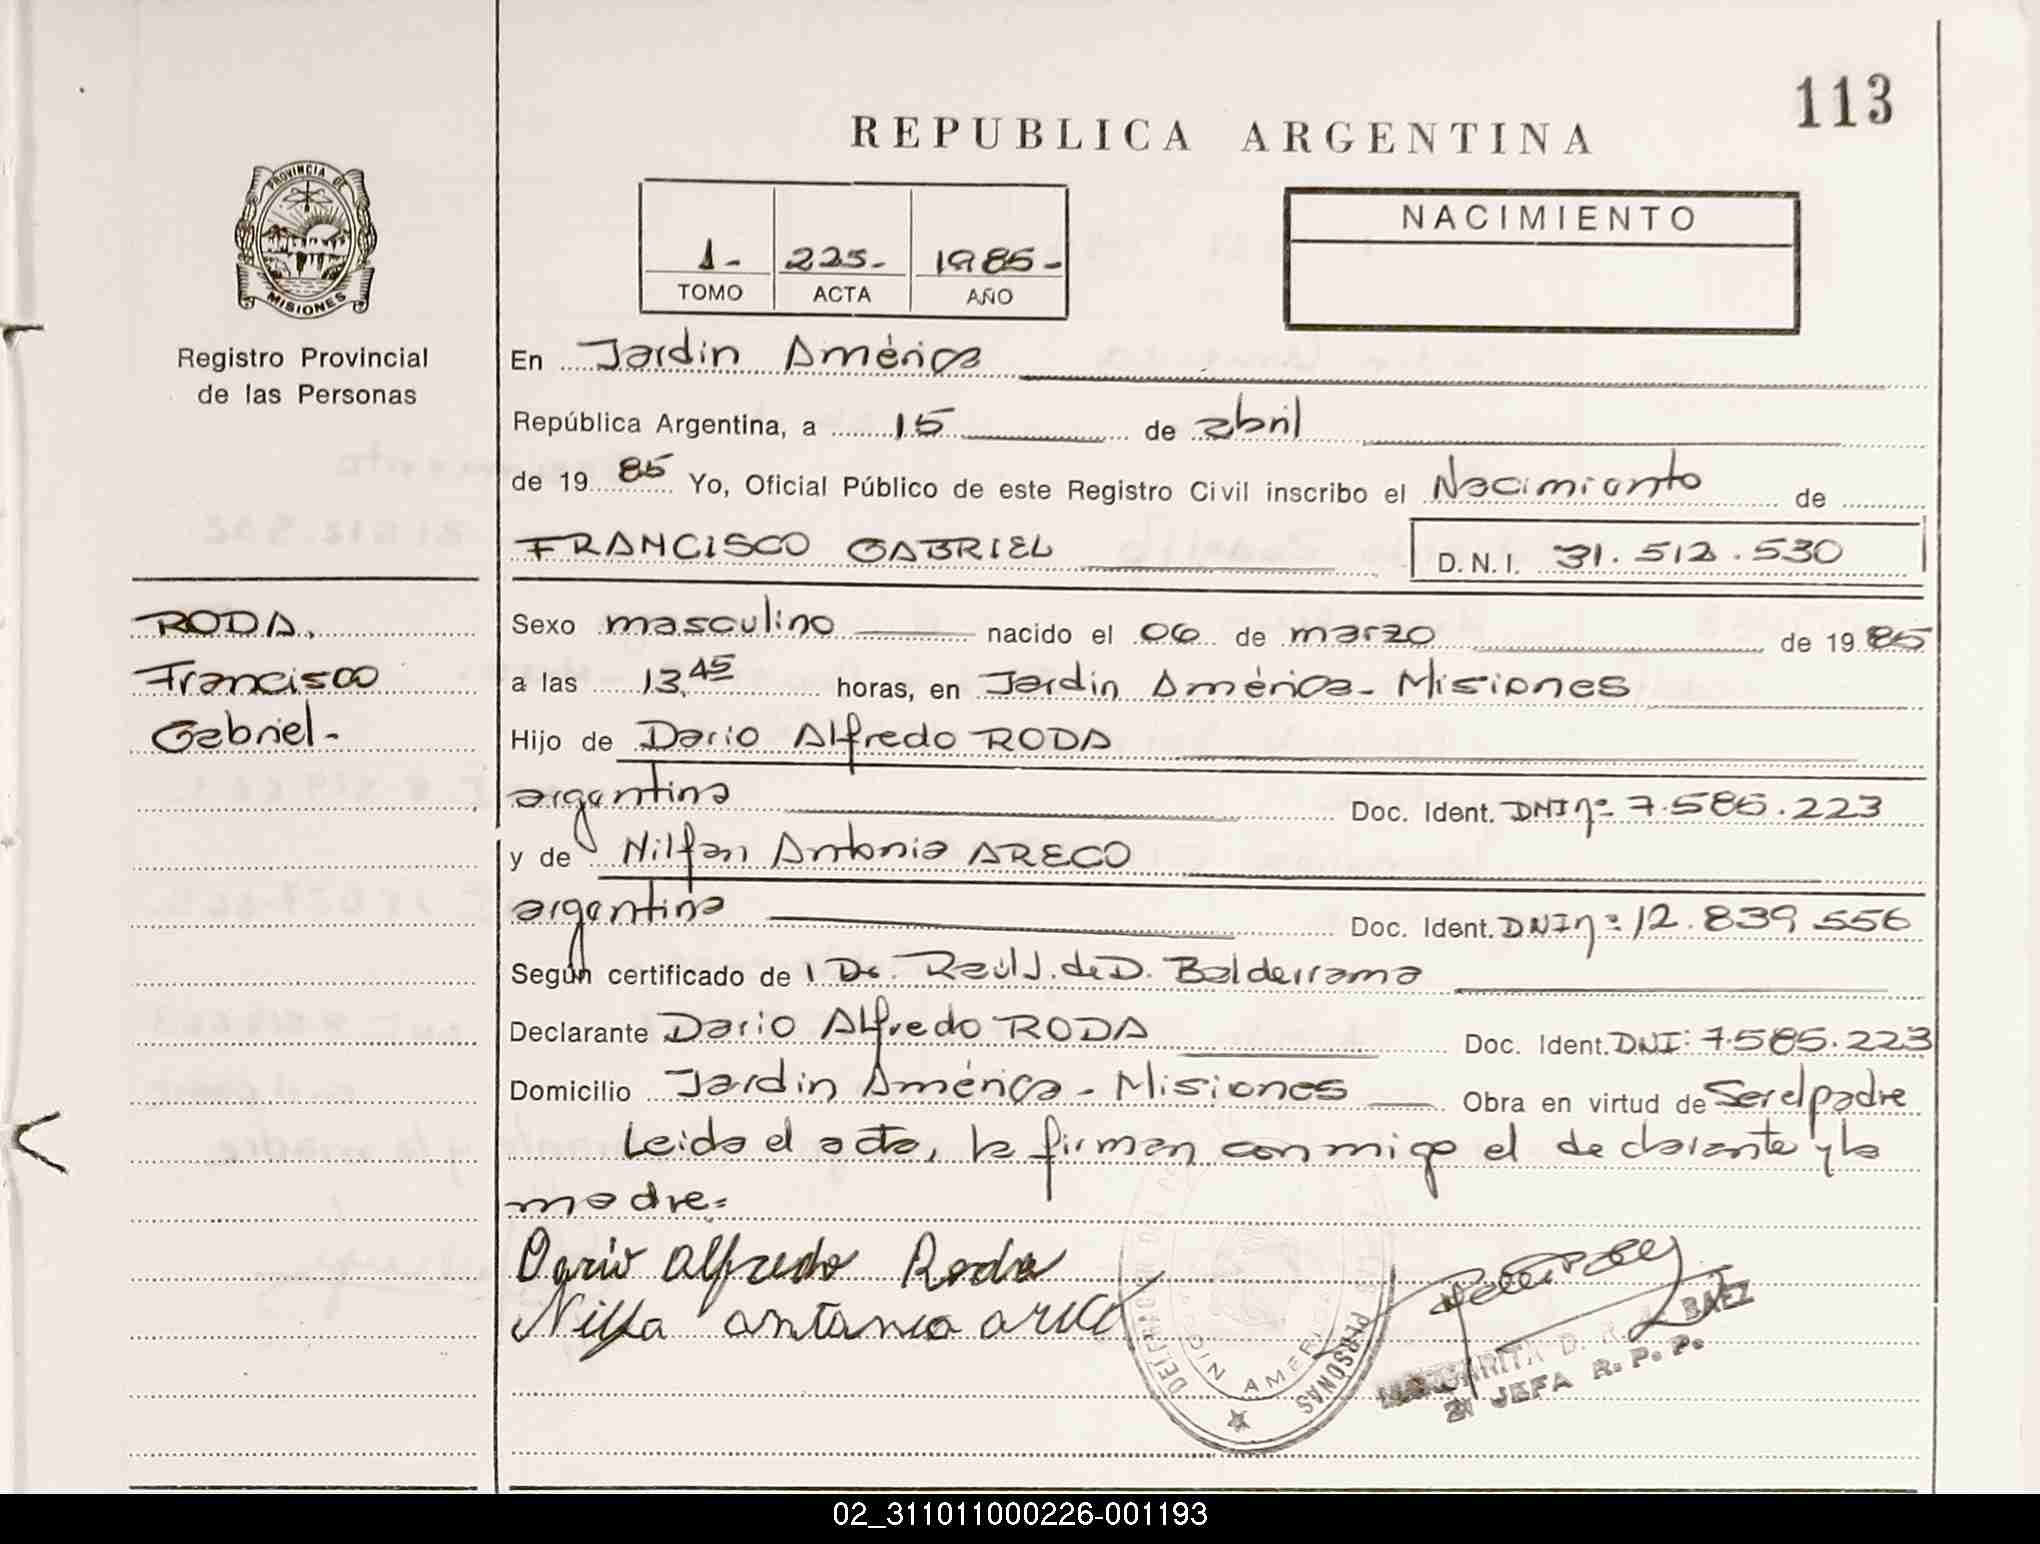 113
REPUBLICA ARGENTINA
PROVINCIA DE
MISIONES
Registro Provincial
de las Personas
1- 225- 1985-
TOMO ACTA AÑO
NACIMIENTO
En Jardin América
República Argentina, a 15 de abril
de 1985 Yo, Oficial Público de este Registro Civil inscribo el Nacimiento de
FRANCISCO GABRIEL D.N.I. 31.512.530
RODA,
Francisco
Gabriel-
Sexo masculino nacido el 06 de marzo de 1985
a las 13,45 horas, en Jardin América- Misiones
Hijo de Dario Alfredo RODA
argentina Doc. Ident. DNI nº 7.585.223
y de Nilfan Antonia ARECO
argentina Doc. Ident. DNI nº 12.839 556
Según certificado de Raúl J. de D. Balderrama
Declarante Dario Alfredo RODA Doc. Ident. DNI: 7.585.223
Domicilio Jardin América - Misiones Obra en virtud de Ser el padre
Leida el acta, la firman conmigo el declarante y la
madre=
Dario Alfredo Roda
Nilfa antonia areco
PERSONAS
MARGARITA D. BAEZ
JEFA R. P. P.
02_311011000226-001193